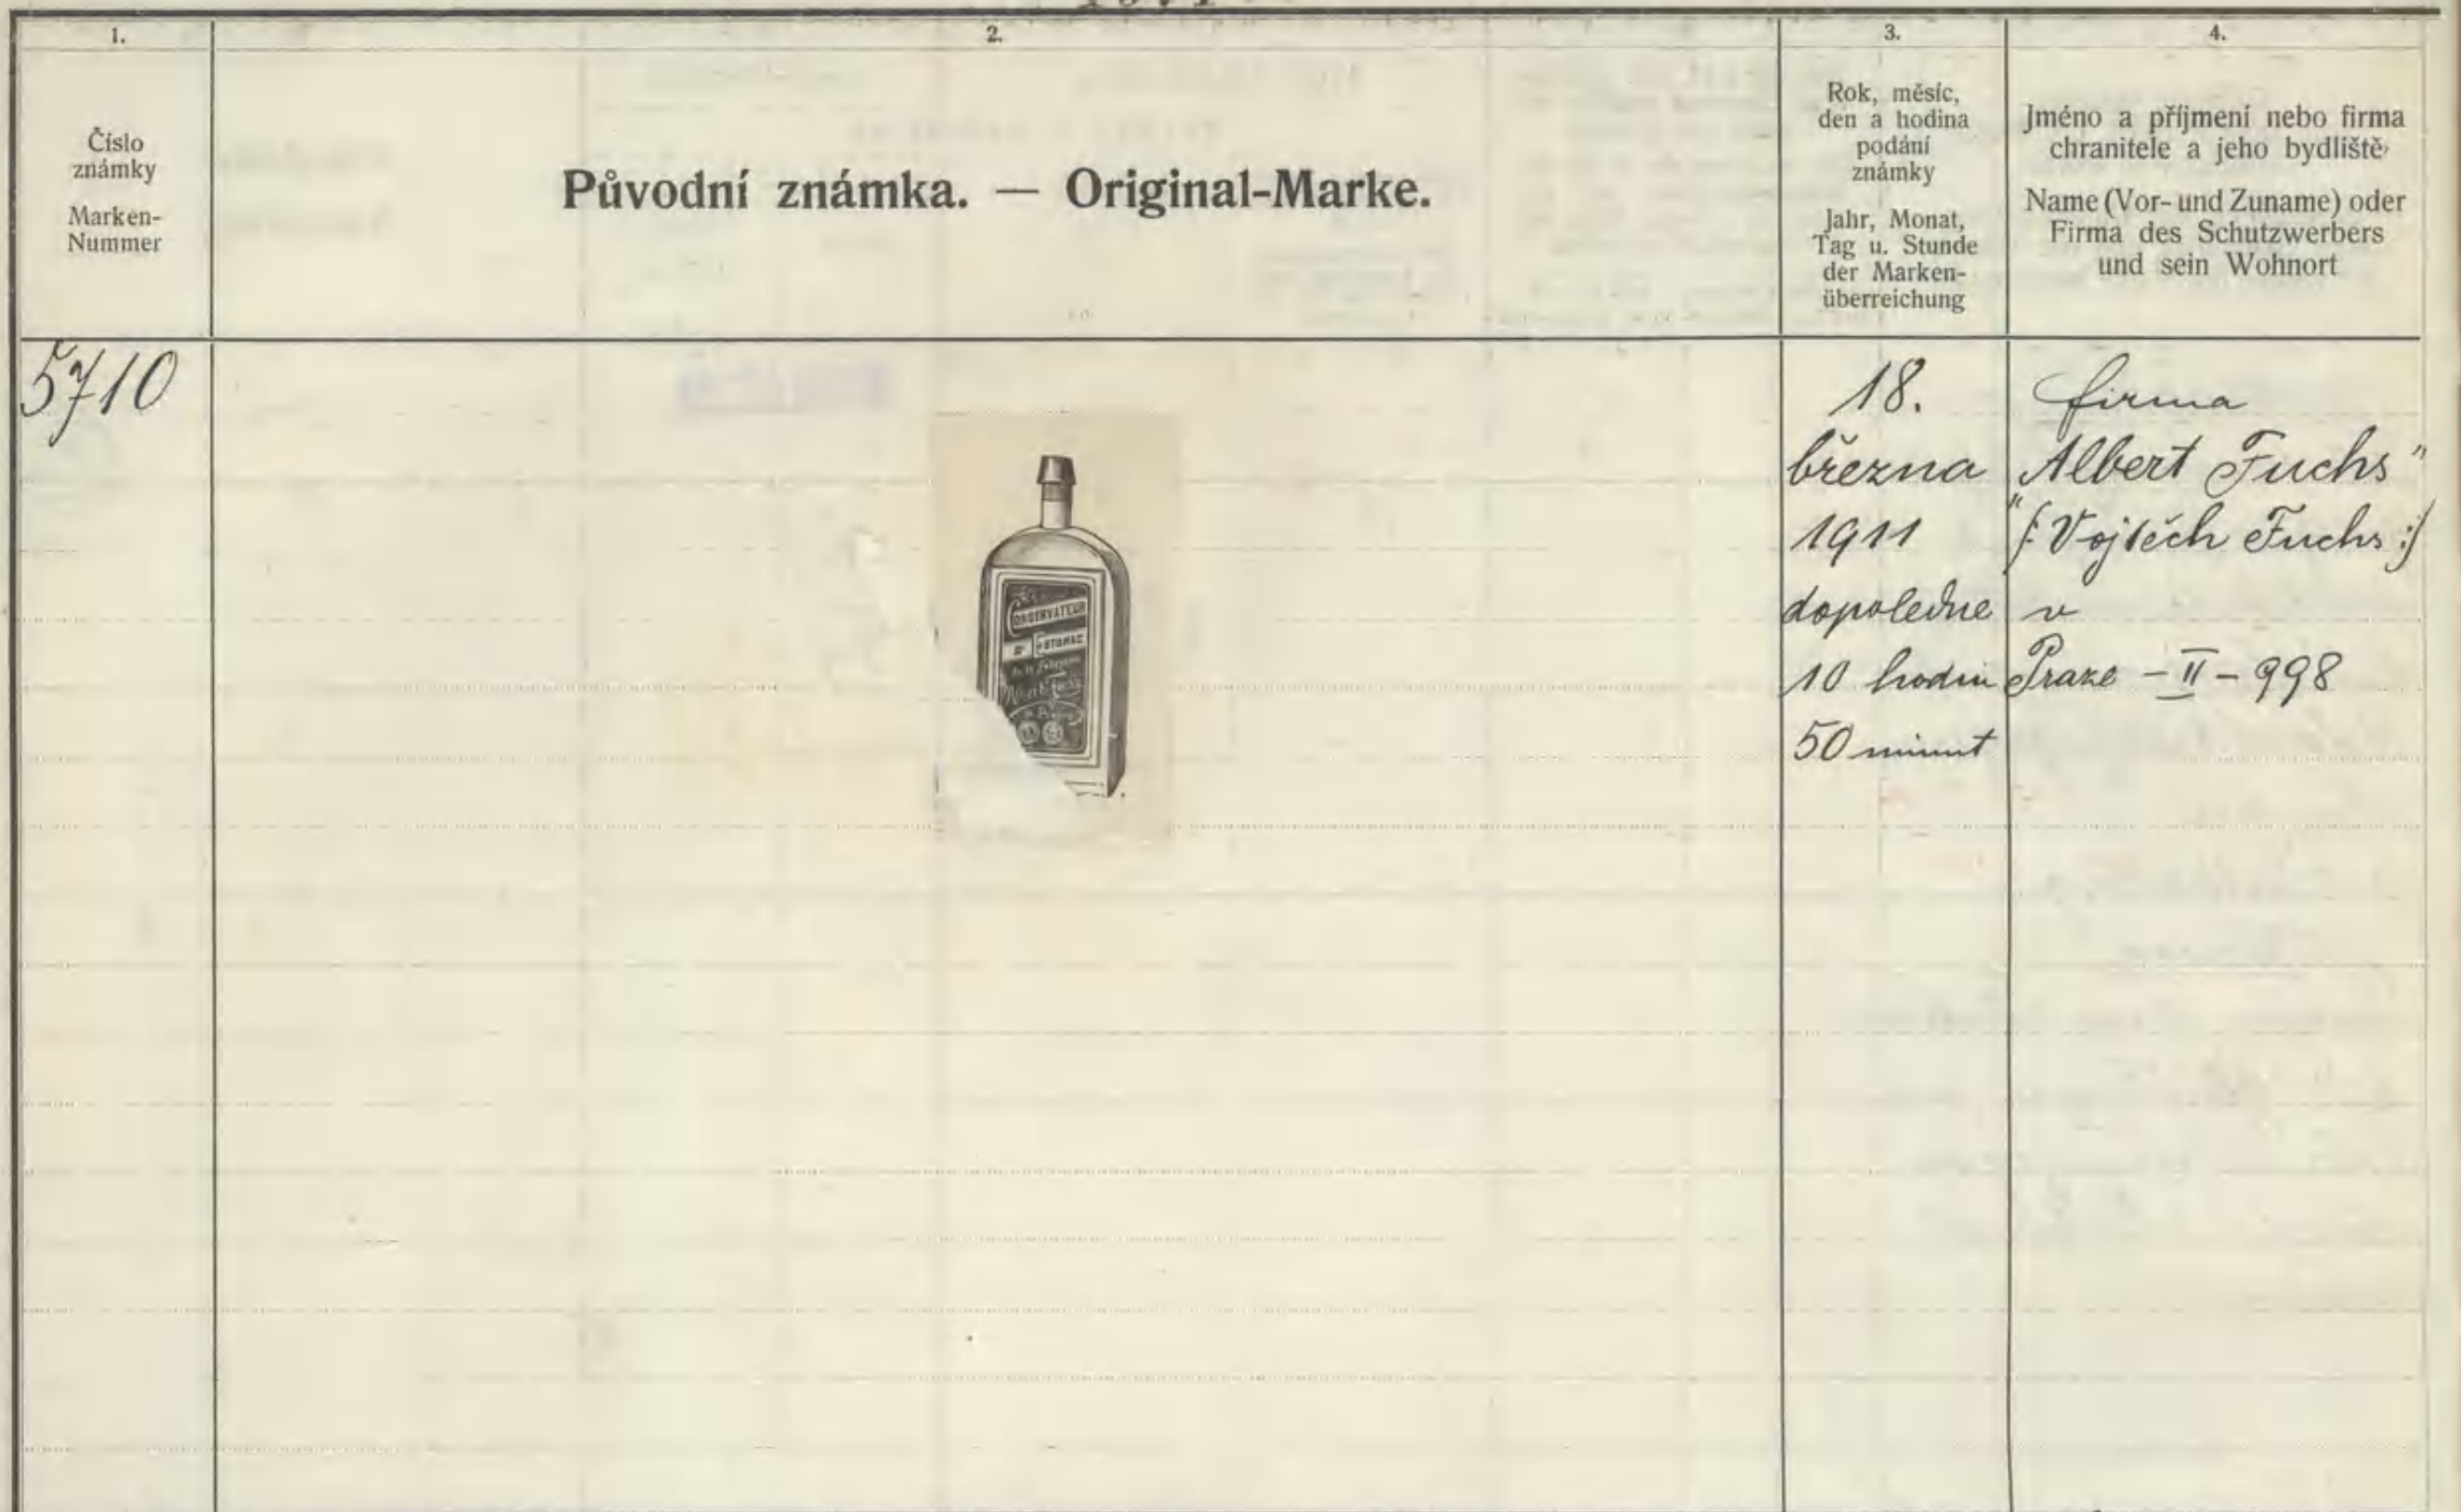 1.
2.
3.
4.
Číslo
známky
Marken-
Nummer
Původní známka. — Original-Marke.
Rok, měsíc,
den a hodina
podání
známky
Jahr, Monat,
Tag u. Stunde
der Marken-
überreichung
Jméno a příjmení nebo firma
chranitele a jeho bydliště
Name (Vor- und Zuname) oder
Firma des Schutzwerbers
und sein Wohnort
5710
CONSERVATEUR
ESTOMAC
Albert Fuchs
18.
března
1911
dopoledne
10 hodin
50 minut
firma
Albert Fuchs"
"/: Vojtěch Fuchs :/
v
Praze - II - 998